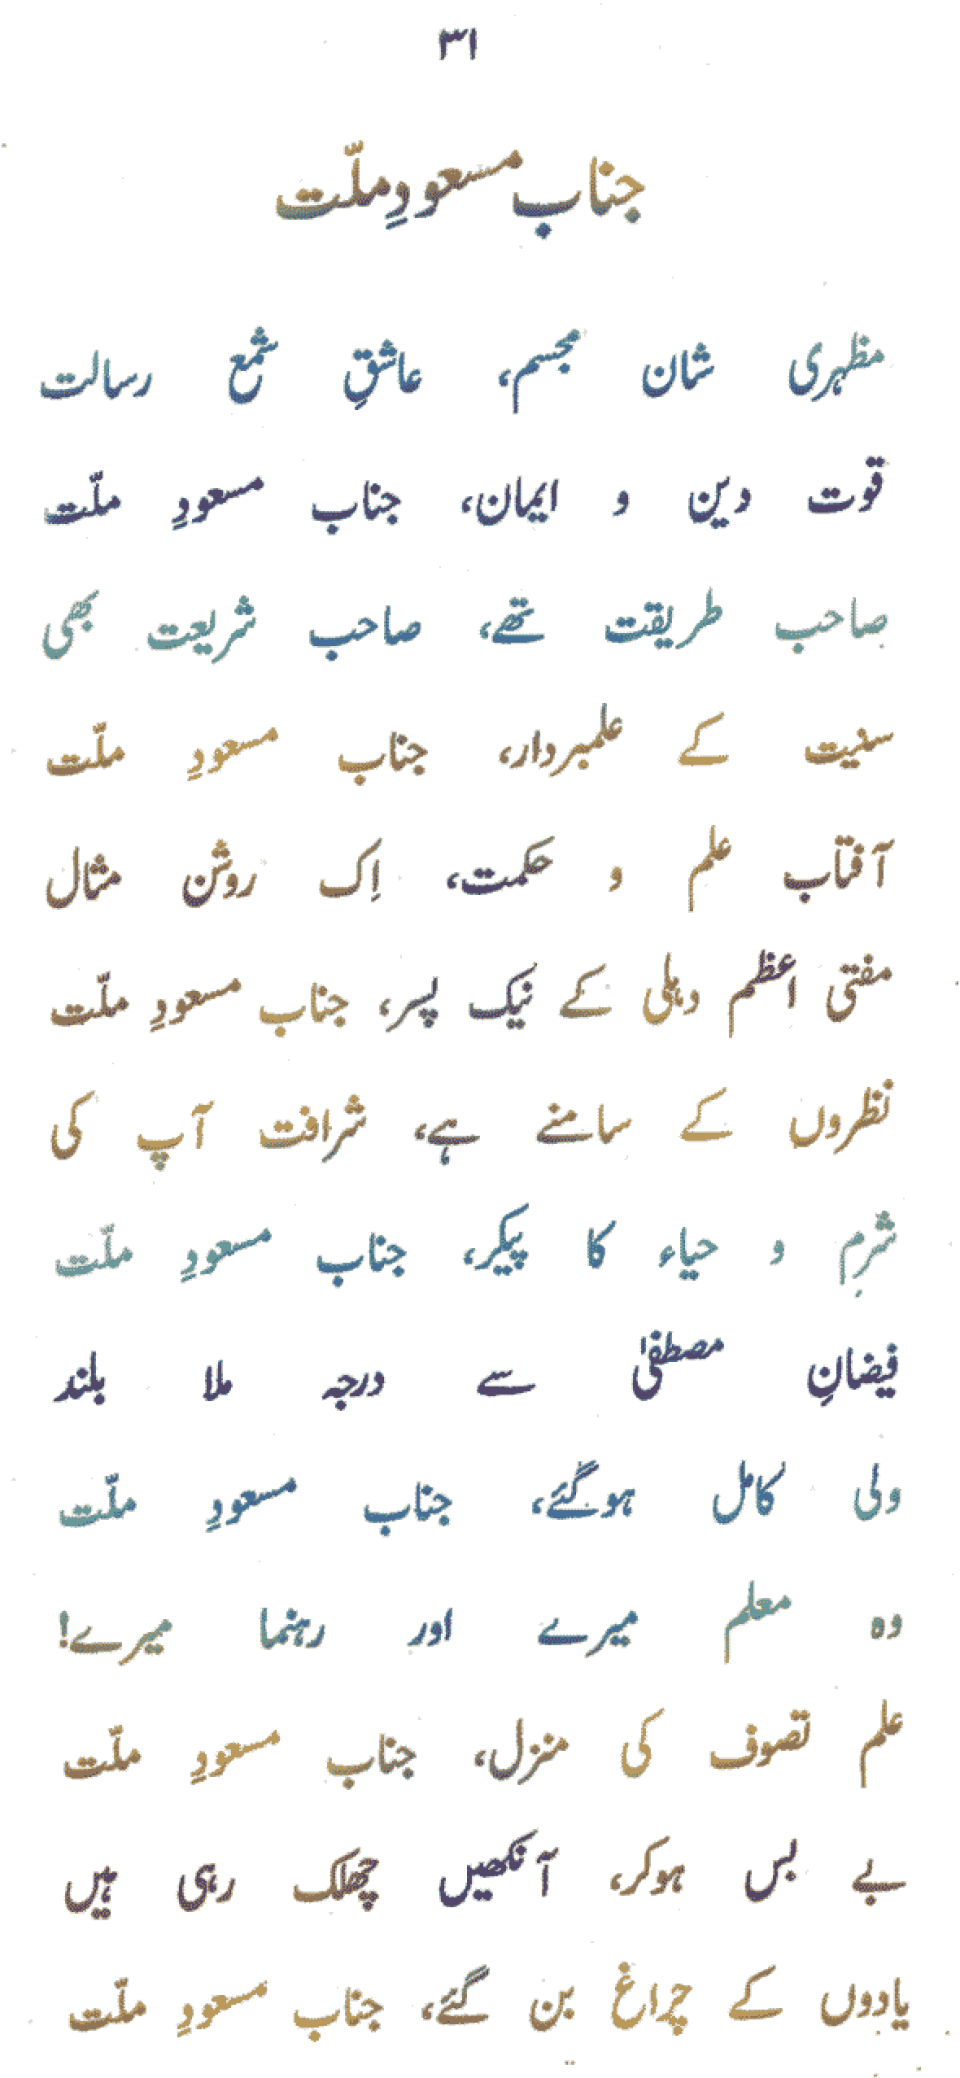 ۳۱
جناب مسعودِ ملّت
مظہری شان مجسم، عاشقِ شمع رسالت
قوت دین و ایمان، جناب مسعودِ ملّت
صاحب طریقت تھے، صاحب شریعت بھی
سنیت کے علمبردار، جناب مسعودِ ملّت
آفتاب علم و حکمت، اِک روشن مثال
مفتی اعظم دہلی کے نیک پسر، جناب مسعودِ ملّت
نظروں کے سامنے ہے، شرافت آپ کی
شرم و حیاء کا پیکر، جناب مسعودِ ملّت
فیضانِ مصطفیٰ سے درجہ ملا بلند
ولی کامل ہوگئے، جناب مسعودِ ملّت
وہ معلم میرے اور رہنما میرے!
علم تصوف کی منزل، جناب مسعودِ ملّت
بے بس ہوکر، آنکھیں چھلک رہی ہیں
یادوں کے چراغ بن گئے، جناب مسعودِ ملّت